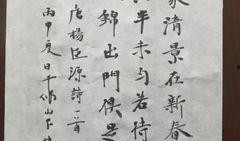 家清景在新春
半未勻若待
錦出門俱是
唐楊巨源詩一首
丙申夏日千佛山下